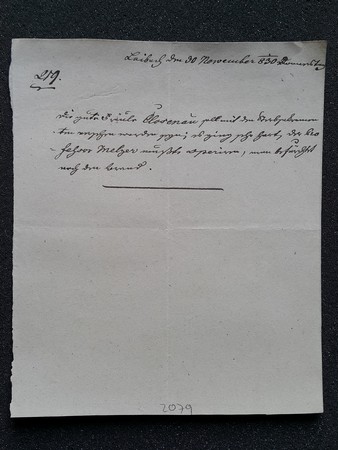 Laibach den 30 November 830 Donnerstag
219.
Die gute Fräule Clorenau soll mit
worden seyn; es ging sehr hart, der Pro-
fessor Melzer mußte operiren, man befürchtet
noch den brand.
2079